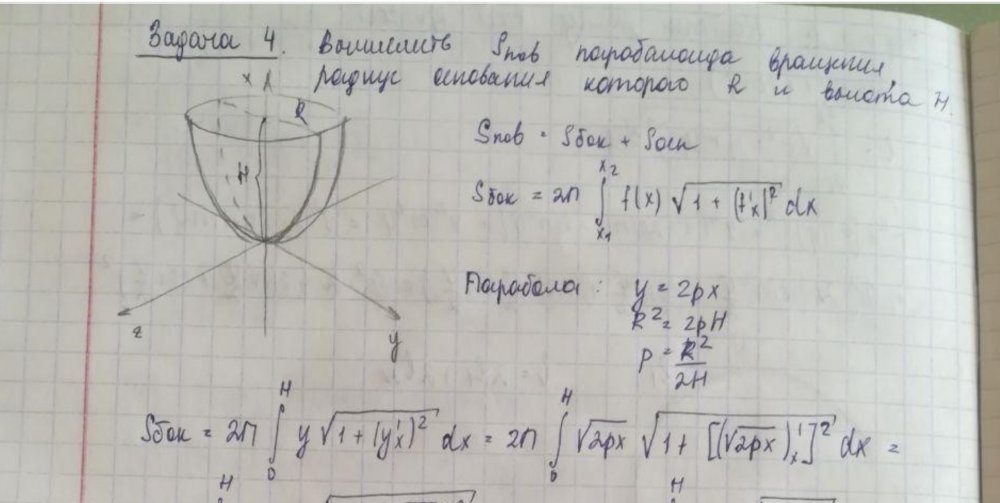 Задача 4. Вычислить Sпов параболоида вращения,
радиус основания которого R и высота H.
x
R
H
z
y
Sпов = Sбок + Sосн
Sбок = 2π ∫_{x1}^{x2} f(x) √(1 + (f'x)²) dx
Парабола: y = 2px
R² = 2pH
p = R²/2H
Sбок = 2π ∫_0^H y √(1 + (y'x)²) dx = 2π ∫_0^H √2px √(1 + [(√2px)'x]²) dx =
H
H